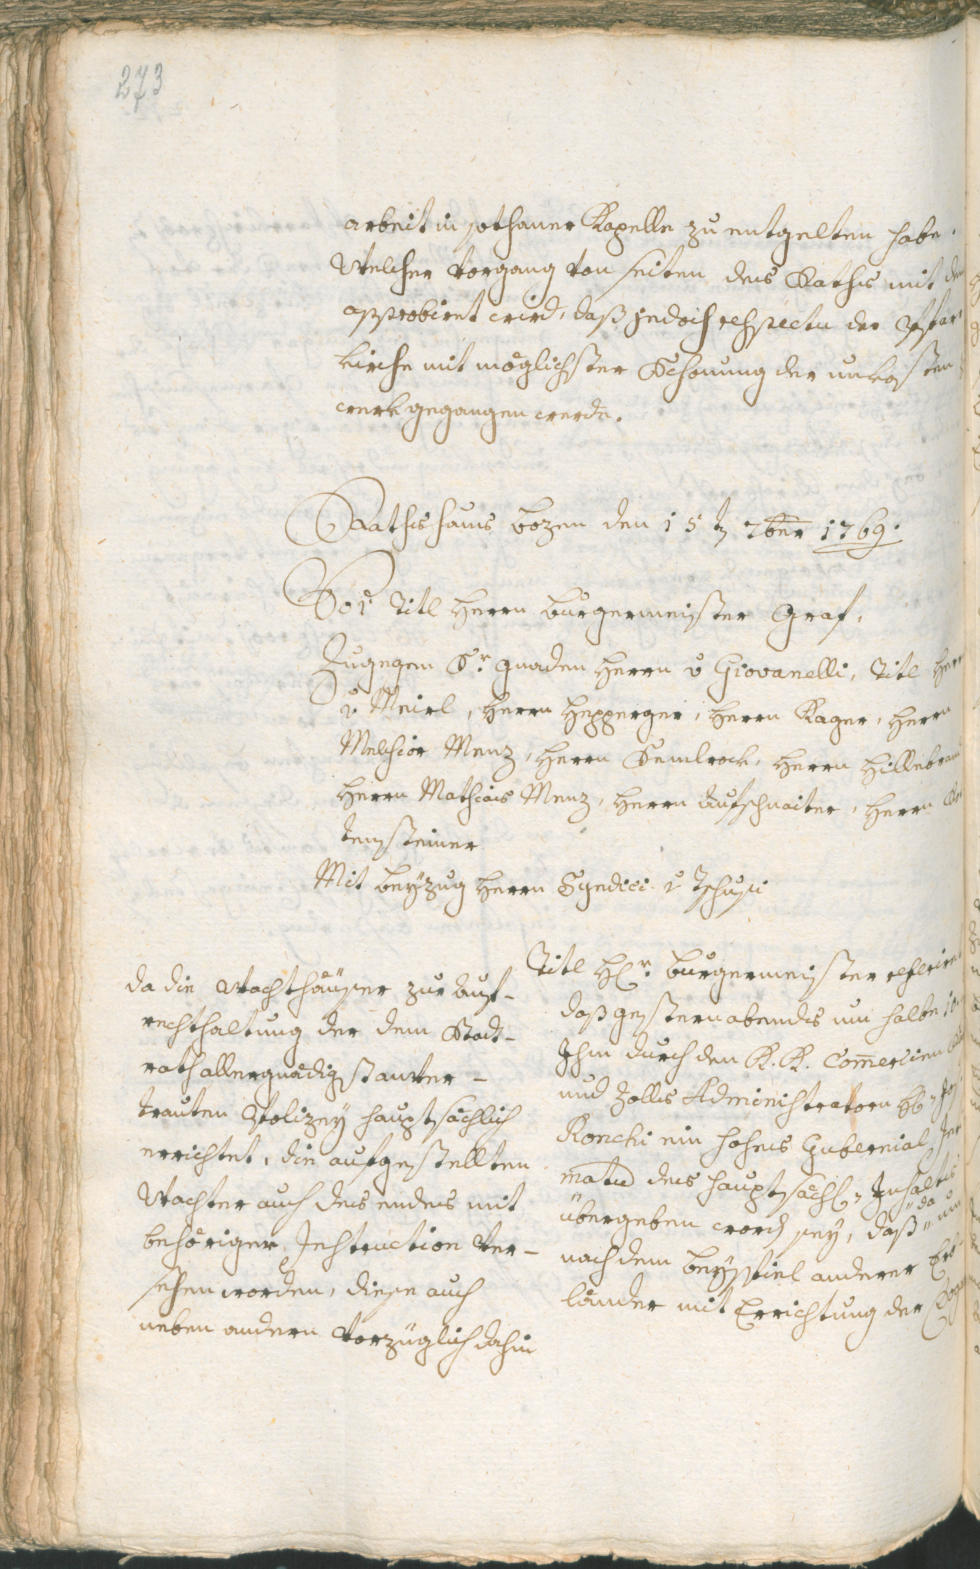 273
arbeit in sothaner Kapelle zu entgelten habe.
Welcher Vorgang von seiten des Raths mit dem
approbirt wird, daß jedoch respectu der Pfarr
kirche mit möglichster Schonung der unkosten
werk gegangen werde.
Rathshaus bozen den 15 7ber 1769.
Vor Titl Herrn burgermeister Graf,
Zugegen Sr. gnaden Herrn v Giovanelli, Titl Herr
v Meirl, Herrn Hepperger, Herrn Rager, Herrn
Melchior Menz, Herrn Semlrock, Herrn Hillebrand
Herrn Mathias Menz, Herrn Aufschnaiter, Herrn
tensteiner
Mit beyzug Herrn Syndici v Tschusi
da die Wachthäuser zur Auf-
rechthaltung der dem Stadt-
rath allergnädigst anver-
trauten Polizey hauptsächlich
errichtet, die aufgestellten
Wachter auch des endes mit
behöriger Instruction ver-
sehen worden, diese auch
neben andern vorzüglich dahin
Titl H. burgermeister referirt
daß gestern abends um halbe 10
Ihm durch den K. K. Comercien
und Zolls Administratorn
Ronchi ein hohes Gubernial
matum des hauptsächl. Inhalts
übergeben word sey, daß da nun
nach dem beyspiel anderer Erb
länder mit Errichtung der